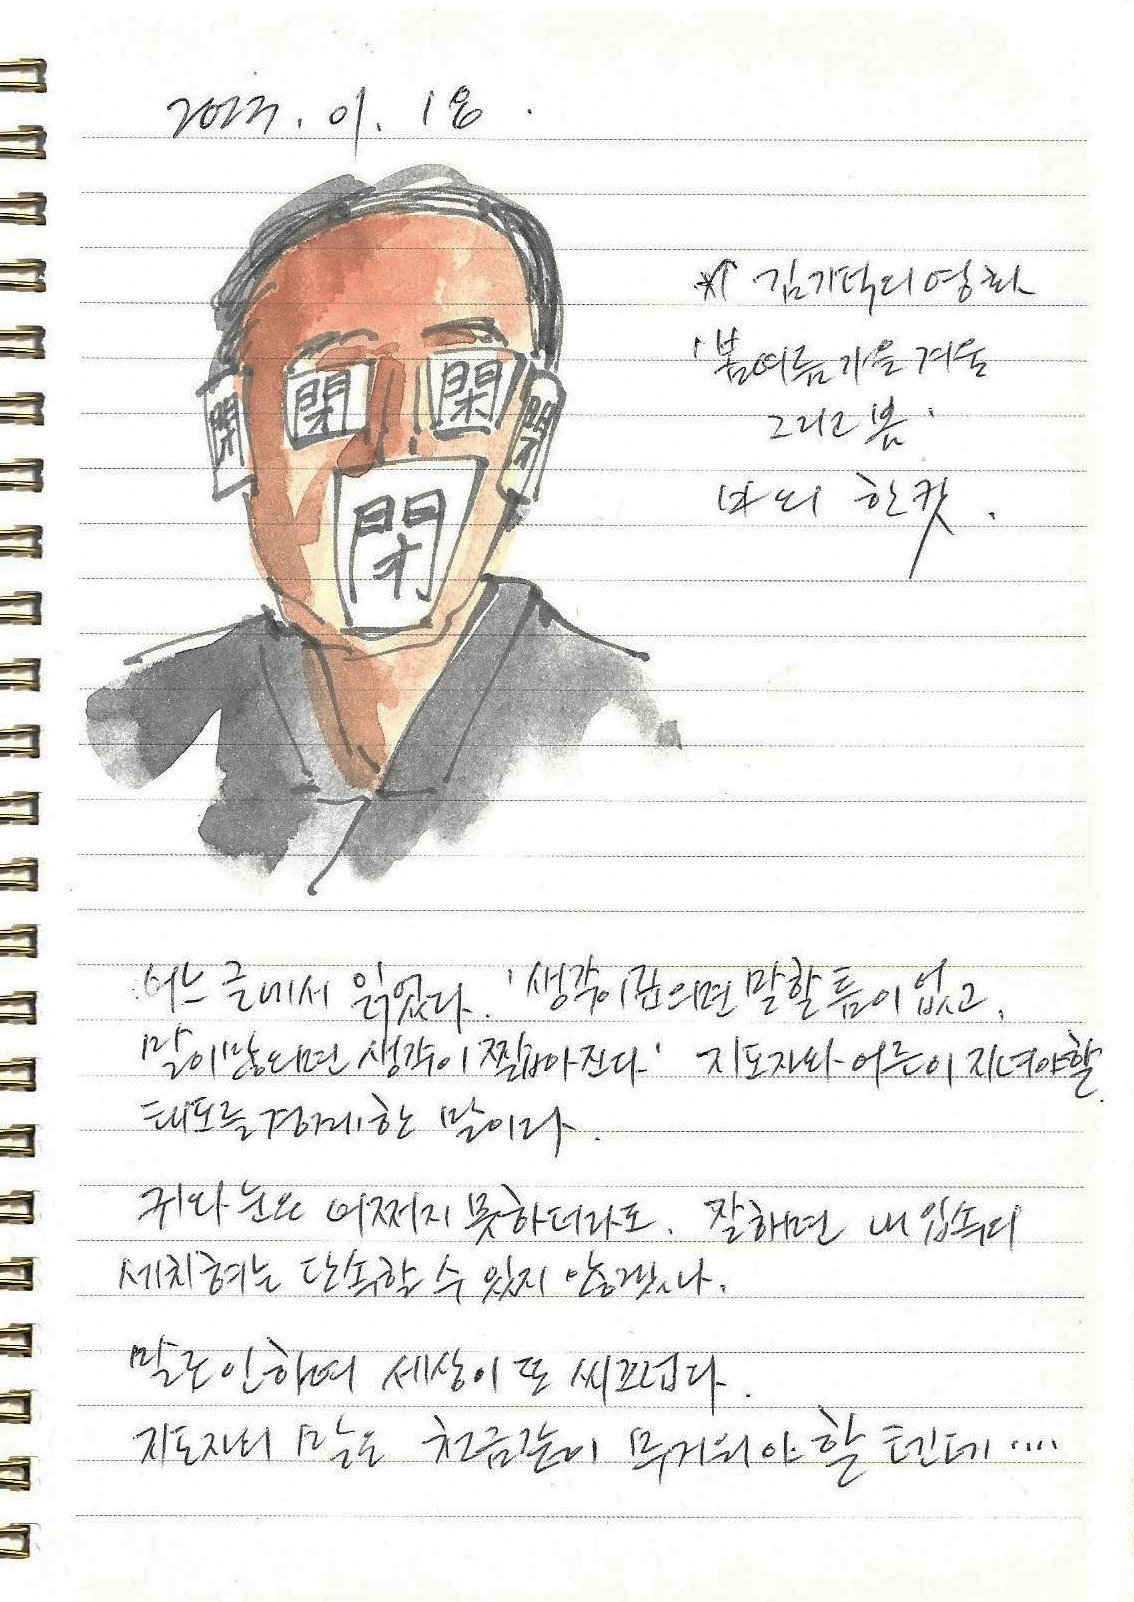 2023. 01. 18.
閉
閉
閉
閉
閉
* 김기덕의 영화
'봄여름가을겨울
그리고 봄'
中의 한 컷.
어느 글에서 읽었다. '생각이 깊으면 말할 틈이 없고,
말이 많으면 생각이 짧아진다' 지도자와 어른이 지녀야할
태도를 경계한 말이라.
귀와 눈은 어쩌지 못하더라도. 잘하면 내 입속의
세치혀는 단속할 수 있지 않겠나.
말로 인하여 세상이 또 씨끄럽다.
지도자의 말은 천금같이 무거워야 할 텐데....